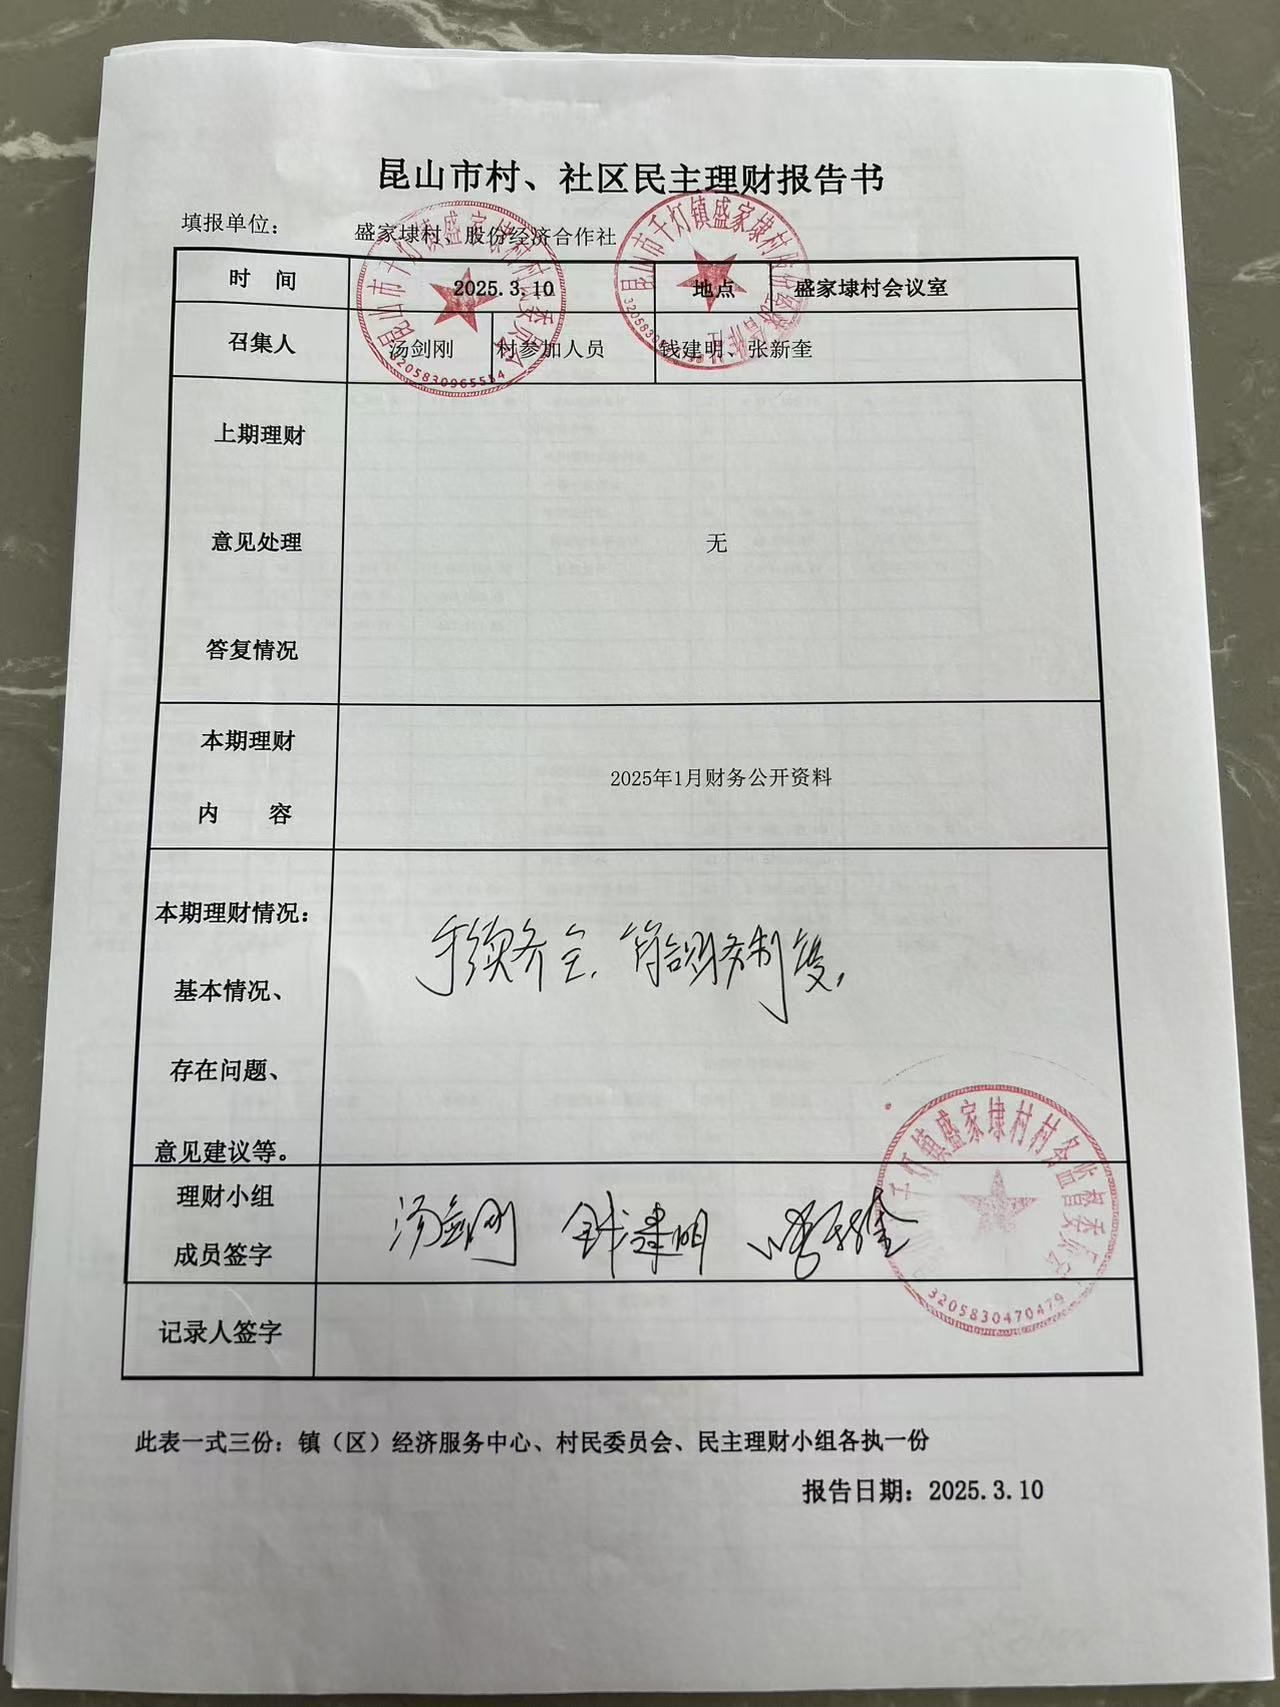 昆山市村、社区民主理财报告书
填报单位： 盛家埭村、股份经济合作社
时 间 2025.3.10 地点 盛家埭村会议室
召集人 汤剑刚 村参加人员 钱建明、张新奎
上期理财
意见处理 无
答复情况
本期理财
2025年1月财务公开资料
内 容
本期理财情况：
手续齐全，符合财务制度。
基本情况、
存在问题、
意见建议等。
理财小组
汤剑刚 钱建明
成员签字
记录人签字
此表一式三份：镇（区）经济服务中心、村民委员会、民主理财小组各执一份
报告日期：2025.3.10
昆山市千灯镇盛家埭村村民委员会
3205830965554
昆山市千灯镇盛家埭村股份经济合作社
千灯镇盛家埭村村务监督委员会
3205830470479